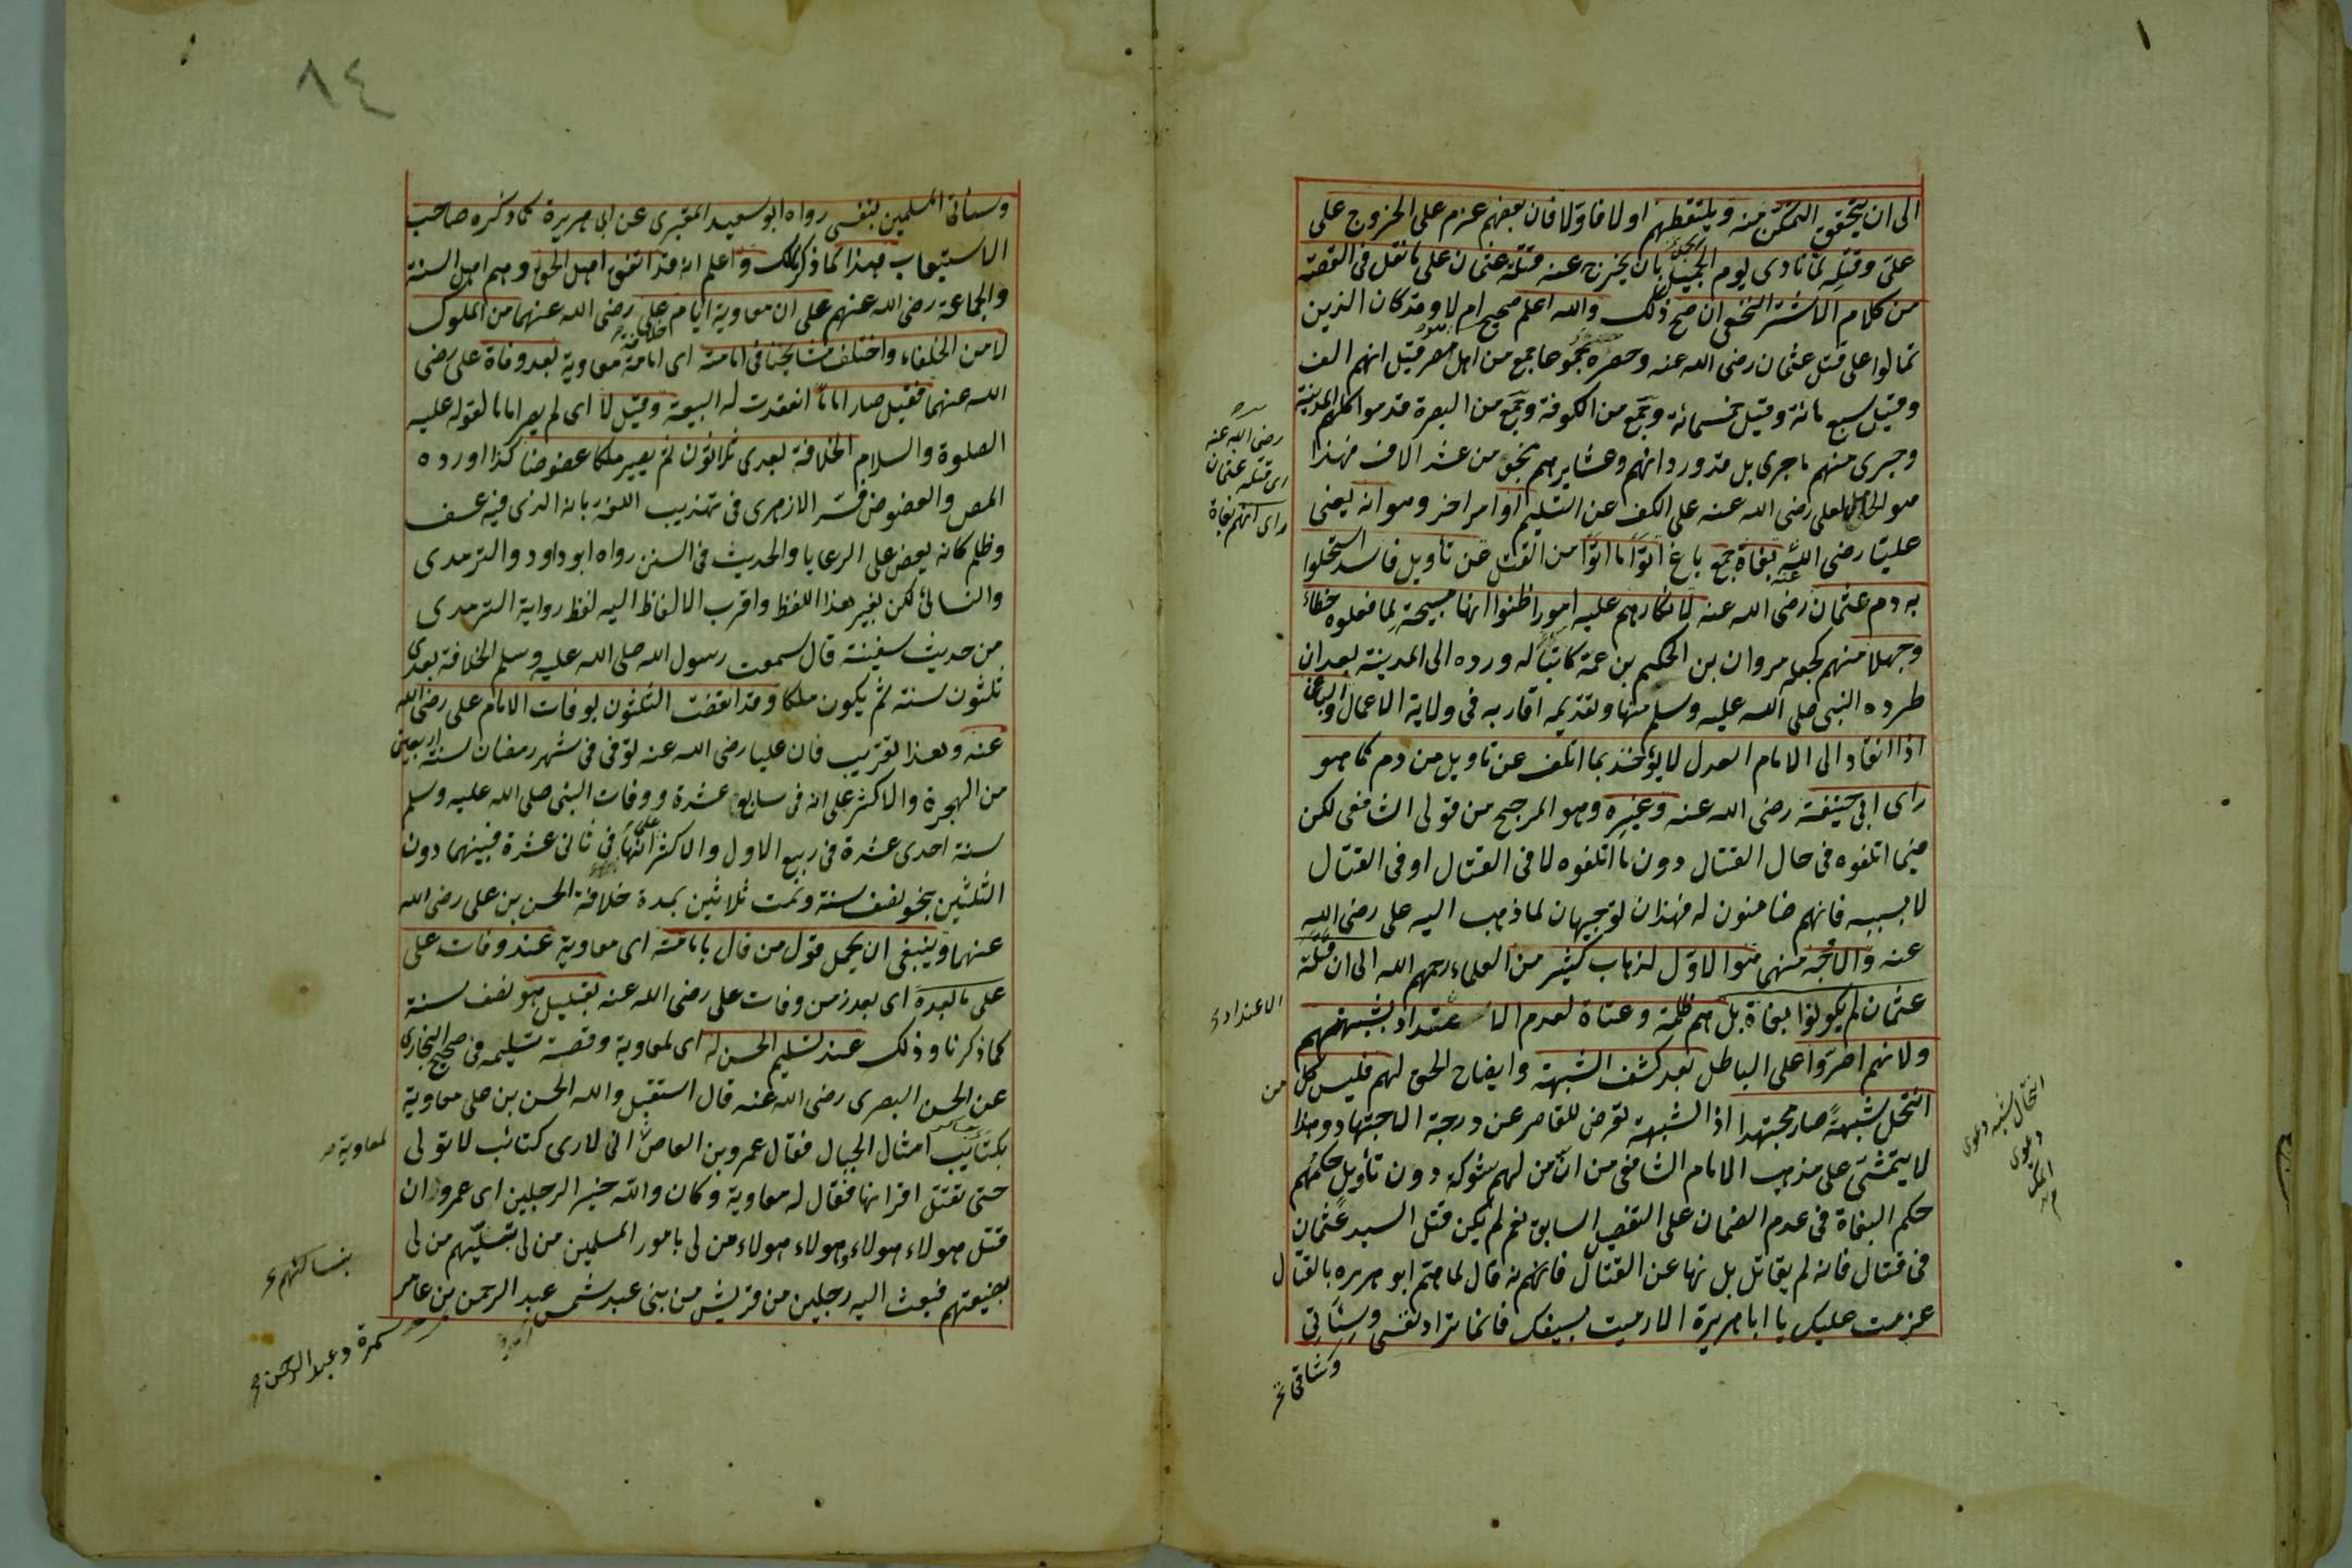 الى ان يتحقق التمكن منه ويلتقطهم اولا فاولا فان بعضهم عزم على الخروج على
على وقتله لما نادى يوم الجمل بان يخرج عنه قتلة عثمان على ما نقل فى القصة
من كلام الاشتر النخعى ان صح ذلك والله اعلم صحيح ام لا وقد كان الذين
تمالوا على قتل عثمان رضى الله عنه وحصره جموعا جمع من اهل مصر قيل انهم الف
وقيل سبع مائة وقيل خمسمائة وجمع من الكوفة وجمع من البصرة قدموا كلهم المدينة
وجرى منهم ما جرى بل قد ورد انهم وعشايرهم نحو من عشر الاف فهذا
هو الحامل لعلى رضى الله عنه على الكف عن التسليم او امر اخر وهو انه يعنى
عليا رضى الله عنه بغاة جمع باغ اتوا ما اتوا من القتل عن تأويل فاسد استحلوا
به دم عثمان رضى الله عنه لانكارهم عليه امورا ظنوا انها مبيحة لما فعلوه خطاء
وجهلا منهم كجعله مروان بن الحكم بن عمه كاتبا له ورده الى المدينة بعد ان
طرده النبى صلى الله عليه وسلم منها وتقديمه اقاربه فى ولاية الاعمال والباغى
اذا انقاد الى الامام العدل لا يؤخذ بما اتلف عن تاويل من دم كما هو
راى ابى حنيفة رضى الله عنه وغيره وهو المرجح من قولى الشافعى لكن
فيما اتلفوه فى حال القتال دون ما اتلفوه لا فى القتال او فى القتال
لا بسببه فانهم ضامنون له فهذان توجيهان لما ذهب اليه على رضى الله
عنه والاوجه منهما هو الاول لذهاب كثير من العلماء رحمهم الله الى ان قتلة
عثمان لم يكونوا بغاة بل هم ظلمة وعتاة لعدم الاعتداد بشبهتهم
ولانهم اصروا على الباطل بعد كشف الشبهة وايضاح الحق لهم فليس كل
انتحل شبهة صار مجتهدا اذ الشبهة تعرض للقاصر عن درجة الاجتهاد وهذا
لا يتمشى على مذهب الامام الشافعى من ان من لهم شوكة دون تأويل حكمهم
حكم البغاة فى عدم الضمان على التفصيل السابق نعم لم يكن قتل السيد عثمان
فى قتال فانه لم يقاتل بل نها عن القتال فانهم نه قال لما هم ابو هريره بالقتال
عزمت عليك يا ابا هريرة الا رميت بسيفك فانما تراد نفسى وستأتى
رضى الله عنه
راى قتله عثمان
راى انهم بغاة
الاعتداد
من
انتحال شبهه دعوى
وشاقى
٨٤
وسأقى المسلمين بنفسى رواه ابو سعيد المقبرى عن ابى هريرة كما ذكره صاحب
الاستيعاب هذا كما ذكر لك واعلم انه قد اتفق اهل الحق وهم اهل السنة
والجماعة رضى الله عنهم على ان معاوية ايام على رضى الله عنهما من الملوك
لا من الخلفاء واختلف مشايخنا فى امامته اى امامة معاوية بعد وفاة على رضى
الله عنهما فقيل صار اماما انعقدت له البيعة وقيل لا اى لم يصر اماما لقوله عليه
الصلوة والسلام الخلافة بعدى ثلاثون ثم يصير ملكا عضوضا كذا اورده
المص والعضوض فسر الازهرى فى تهذيب اللغة بانه الذى فيه عسف
وظلم كانه يعض على الرعايا والحديث فى السنن رواه ابو داود والترمدى
والنسائى لكن بغير هذا اللفظ واقرب الالفاظ اليه لفظ رواية الترمدى
من حديث سفينة قال سمعت رسول الله صلى الله عليه وسلم الخلافة بعدى
ثلثون سنة ثم يكون ملكا وقد انقضت الثلثون بوفات الامام على رضى الله
عنه وهذا تقريب فان عليا رضى الله عنه توفى فى شهر رمضان سنة اربعين
من الهجرة والاكثر على انه فى سابع عشرة ووفات النبى صلى الله عليه وسلم
سنة احدى عشرة فى ربيع الاول والاكثر على انها فى ثانى عشرة فبينهما دون
الثلثين بنحو نصف سنة وتمت ثلاثين بمدة خلافة الحسن بن على رضى الله
عنهما وينبغى ان يحمل قول من قال بامامته اى معاوية عند وفات على
على ما بعده اى بعد زمن وفات على رضى الله عنه بقليل هو نصف سنة
كما ذكرنا وذلك عند تسليم الحسن له اى لمعاوية وقصة تسليمه فى صحيح البخارى
عن الحسن البصرى رضى الله عنه قال استقبل والله الحسن بن على معاوية
بكتائب امثال الجبال فقال عمرو بن العاص انى لارى كتائب لا تولى
حتى تقتل اقرانها فقال له معاوية وكان والله خير الرجلين اى عمرو ان
قتل هولاء هولاء وهولاء هولاء من لى بامور المسلمين من لى بنسائهم من لى
بضيعتهم فبعث اليه رجلين من قريش من بنى عبد شمس عبد الرحمن بن عامر
لمعاوية
بنسائهم
سمرة وعبد الرحمن